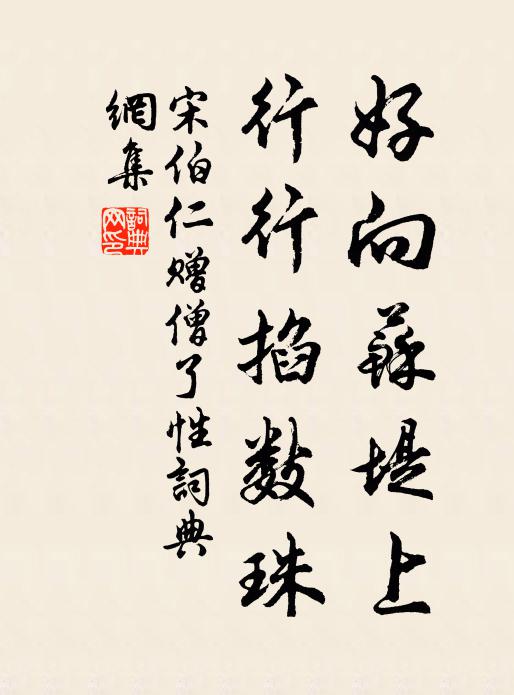 好向蘇堤上
行行掐數珠
宋伯仁贈僧了性詞典
網集
詞典
网印